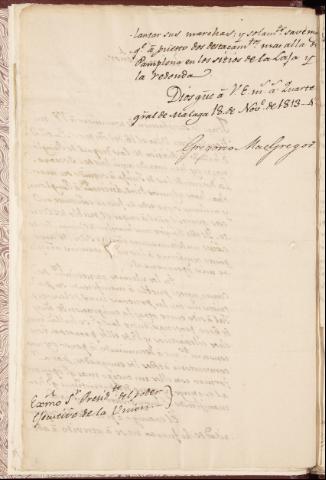 lantar sus marchas, y solamte. savemos
qe. á puesto dos destacamtos. mas alla de
Pamplona en los sitios de la Laja y
la redonda.
Dios gue. á V.E. ms. as. Quartel
gral de Malaga 18. de Nove. de 1813-4
Gregorio MacGregor
Exmo. Sr. Presidte. del poder
Executivo de la Union